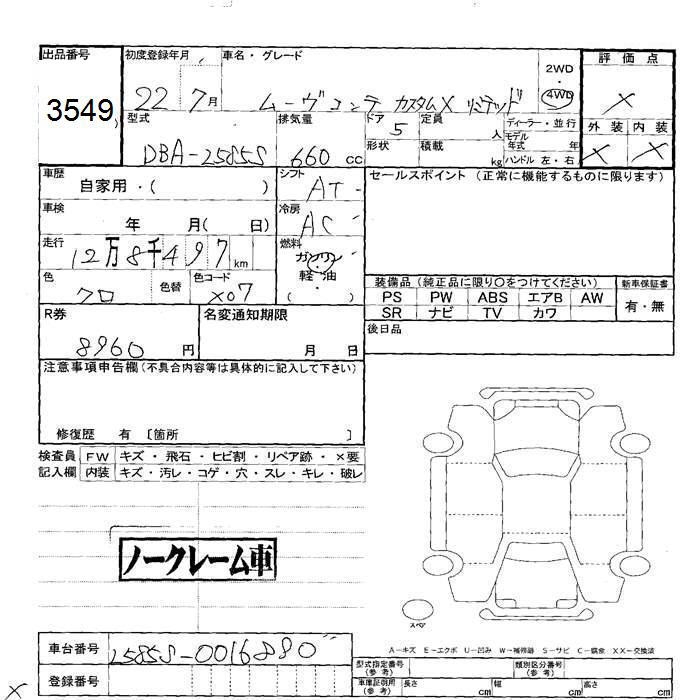 出品番号 初度登録年月 車名・グレード 評価点
3549 22 7月 ムーヴコンテ カスタムX リミテッド 2WD・4WD ×
型式 排気量 ドア 5 定員 人 ディーラー・並行 外装 内装
DBA-L585S 660 cc 形状 積載 kg モデル年式 年 ハンドル 左・右 × ×
車歴 自家用・( ) シフト AT セールスポイント (正常に機能するものに限ります)
車検 年 月( 日) 冷房 AC
走行 12万8千497 km 燃料 ガソリン・軽油 ( )
色 クロ 色替 色コード X07 装備品 (純正品に限り○をつけてください) 新車保証書
PS PW ABS エアB AW 有・無
SR ナビ TV カワ
R券 8960 円 名変通知期限 月 日 後日品
注意事項申告欄(不具合内容等は具体的に記入して下さい)
修復歴 有 〔箇所 〕
検査員 FW キズ・飛石・ヒビ割・リペア跡・×要
記入欄 内装 キズ・汚レ・コゲ・穴・スレ・キレ・破レ
ノークレーム車
スペア
A-キズ E-エクボ U-凹み W-補修跡 S-サビ C-腐食 XX-交換済
車台番号 L585S-0016880
型式指定番号(参考) 類別区分番号(参考)
登録番号 車庫証明用(参考) 長さ cm 幅 cm 高さ cm
×